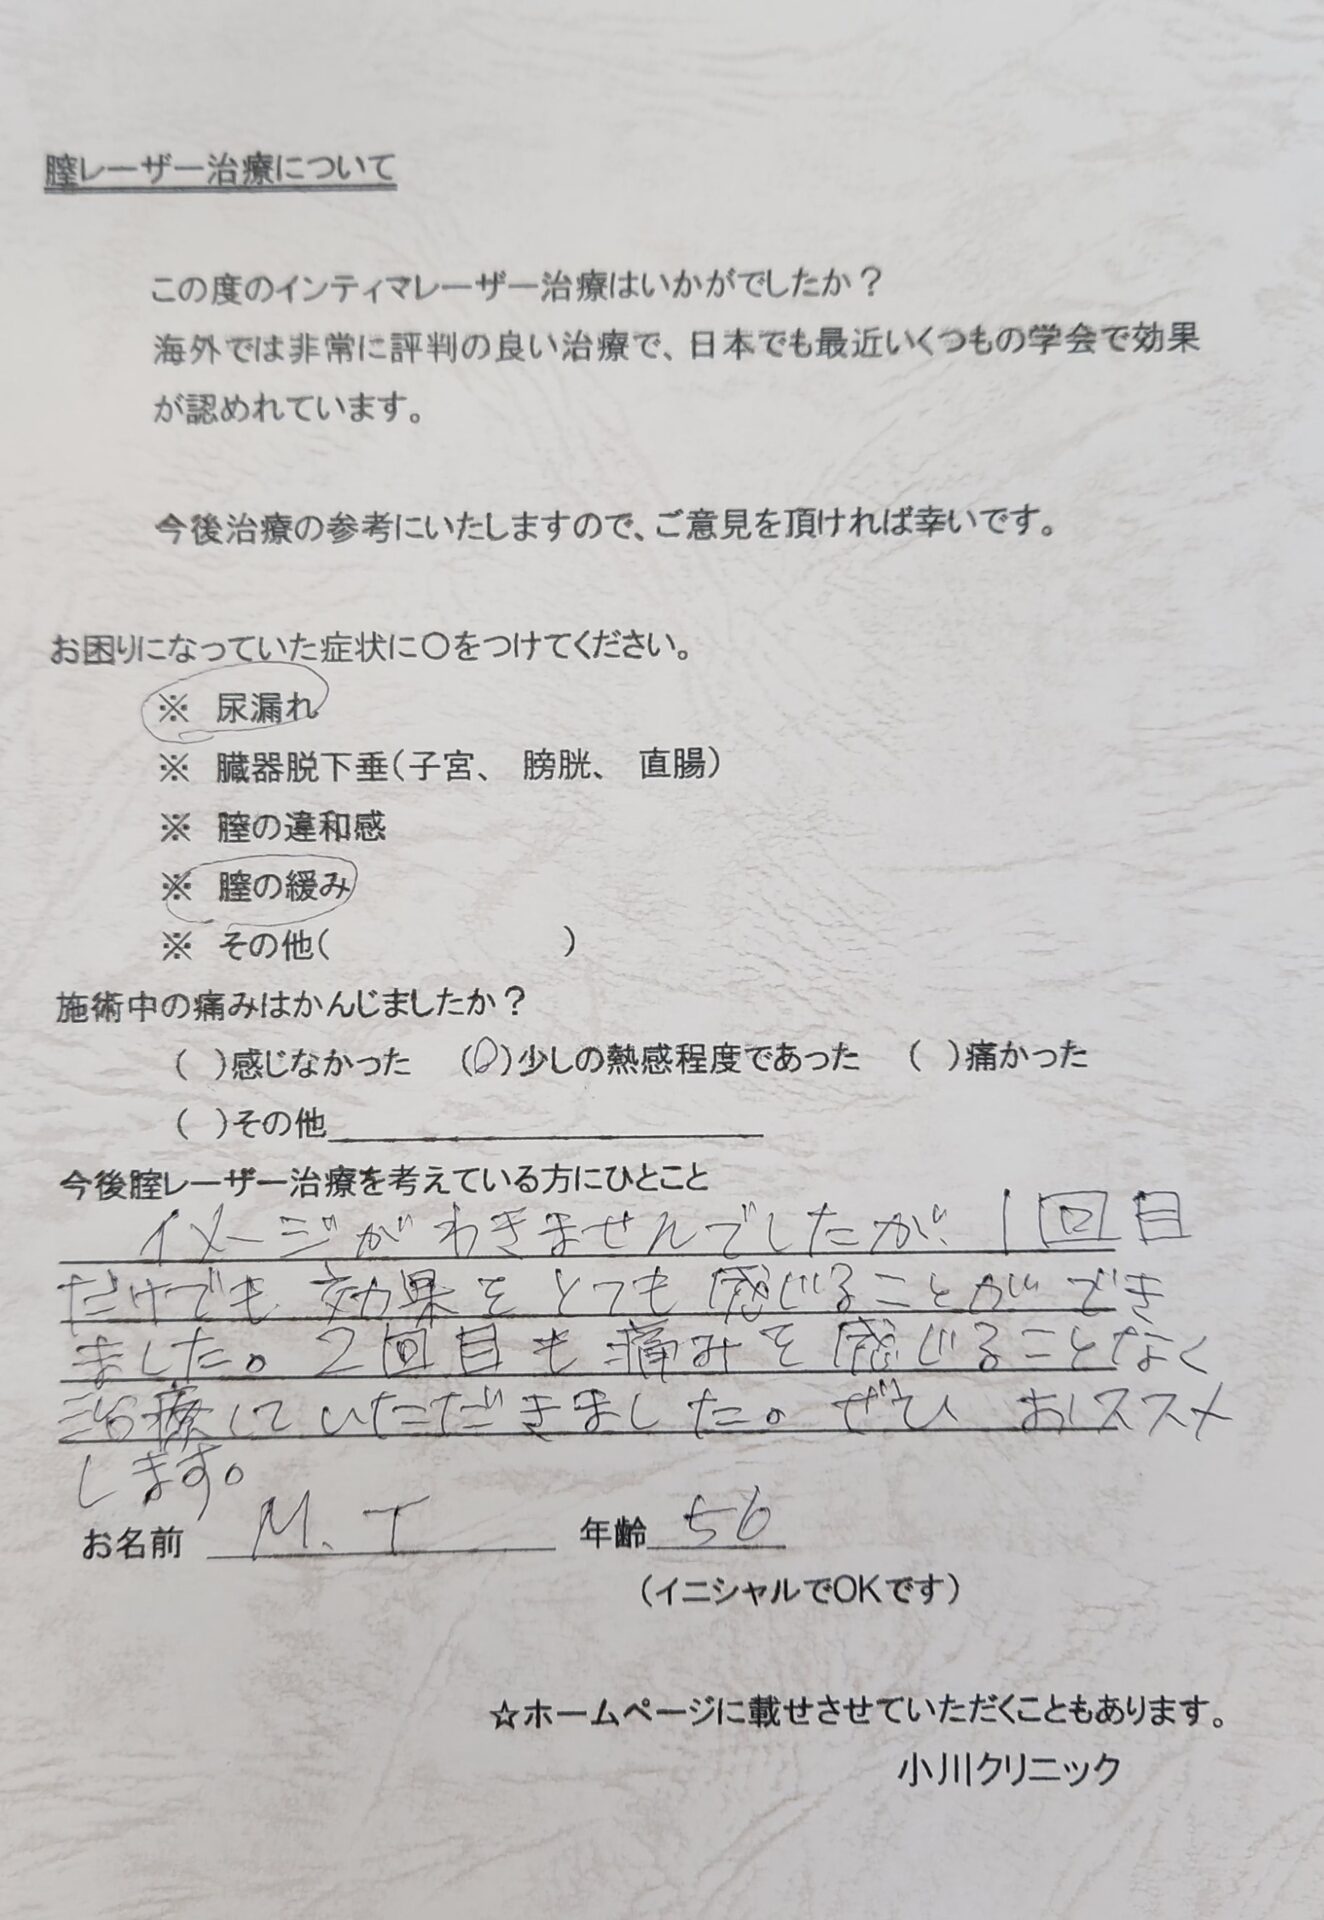 膣レーザー治療について
この度のインティマレーザー治療はいかがでしたか？
海外では非常に評判の良い治療で、日本でも最近いくつもの学会で効果
が認めれています。
今後治療の参考にいたしますので、ご意見を頂ければ幸いです。
お困りになっていた症状に〇をつけてください。
※ 尿漏れ
※ 臓器脱下垂（子宮、 膀胱、 直腸）
※ 膣の違和感
※ 膣の緩み
※ その他（ ）
施術中の痛みはかんじましたか？
（ ）感じなかった （〇）少しの熱感程度であった （ ）痛かった
（ ）その他
今後膣レーザー治療を考えている方にひとこと
イメージがわきませんでしたが、1回目
だけでも効果をとても感じることができ
ました。2回目も痛みを感じることなく
治療していただきました。ぜひおススメ
します。
お名前 M.T 年齢 56
（イニシャルでOKです）
☆ホームページに載せさせていただくこともあります。
小川クリニック